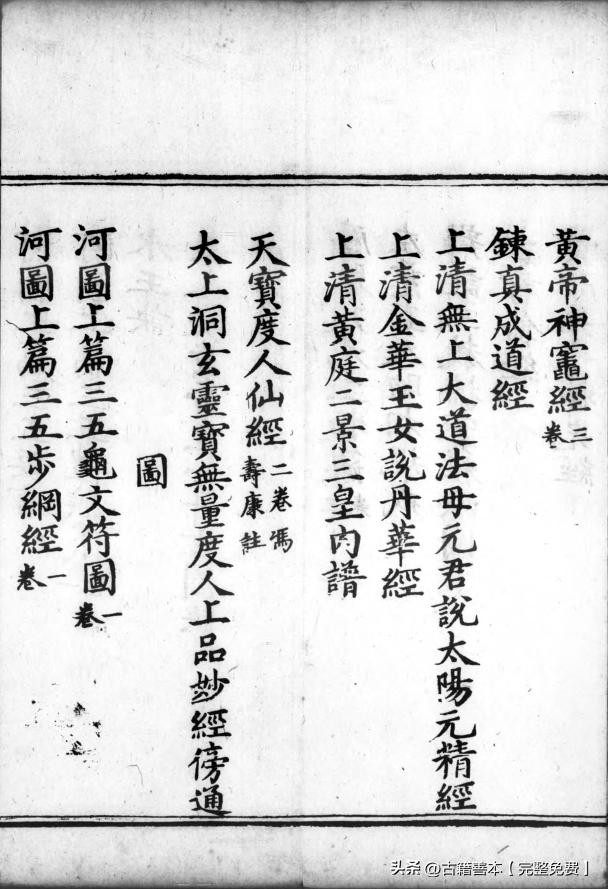 黃帝神竈經三卷
鍊真成道經
上清無上大道法母元君說太陽元精經
上清金華玉女說丹華經
上清黃庭二景三皇內譜
天寶度人仙經二卷馮壽康註
太上洞玄靈寶無量度人上品妙經傍通
圖
河圖上篇三五龜文符圖一卷
河圖上篇三五步綱經一卷
头条 @古籍善本【完整免费】